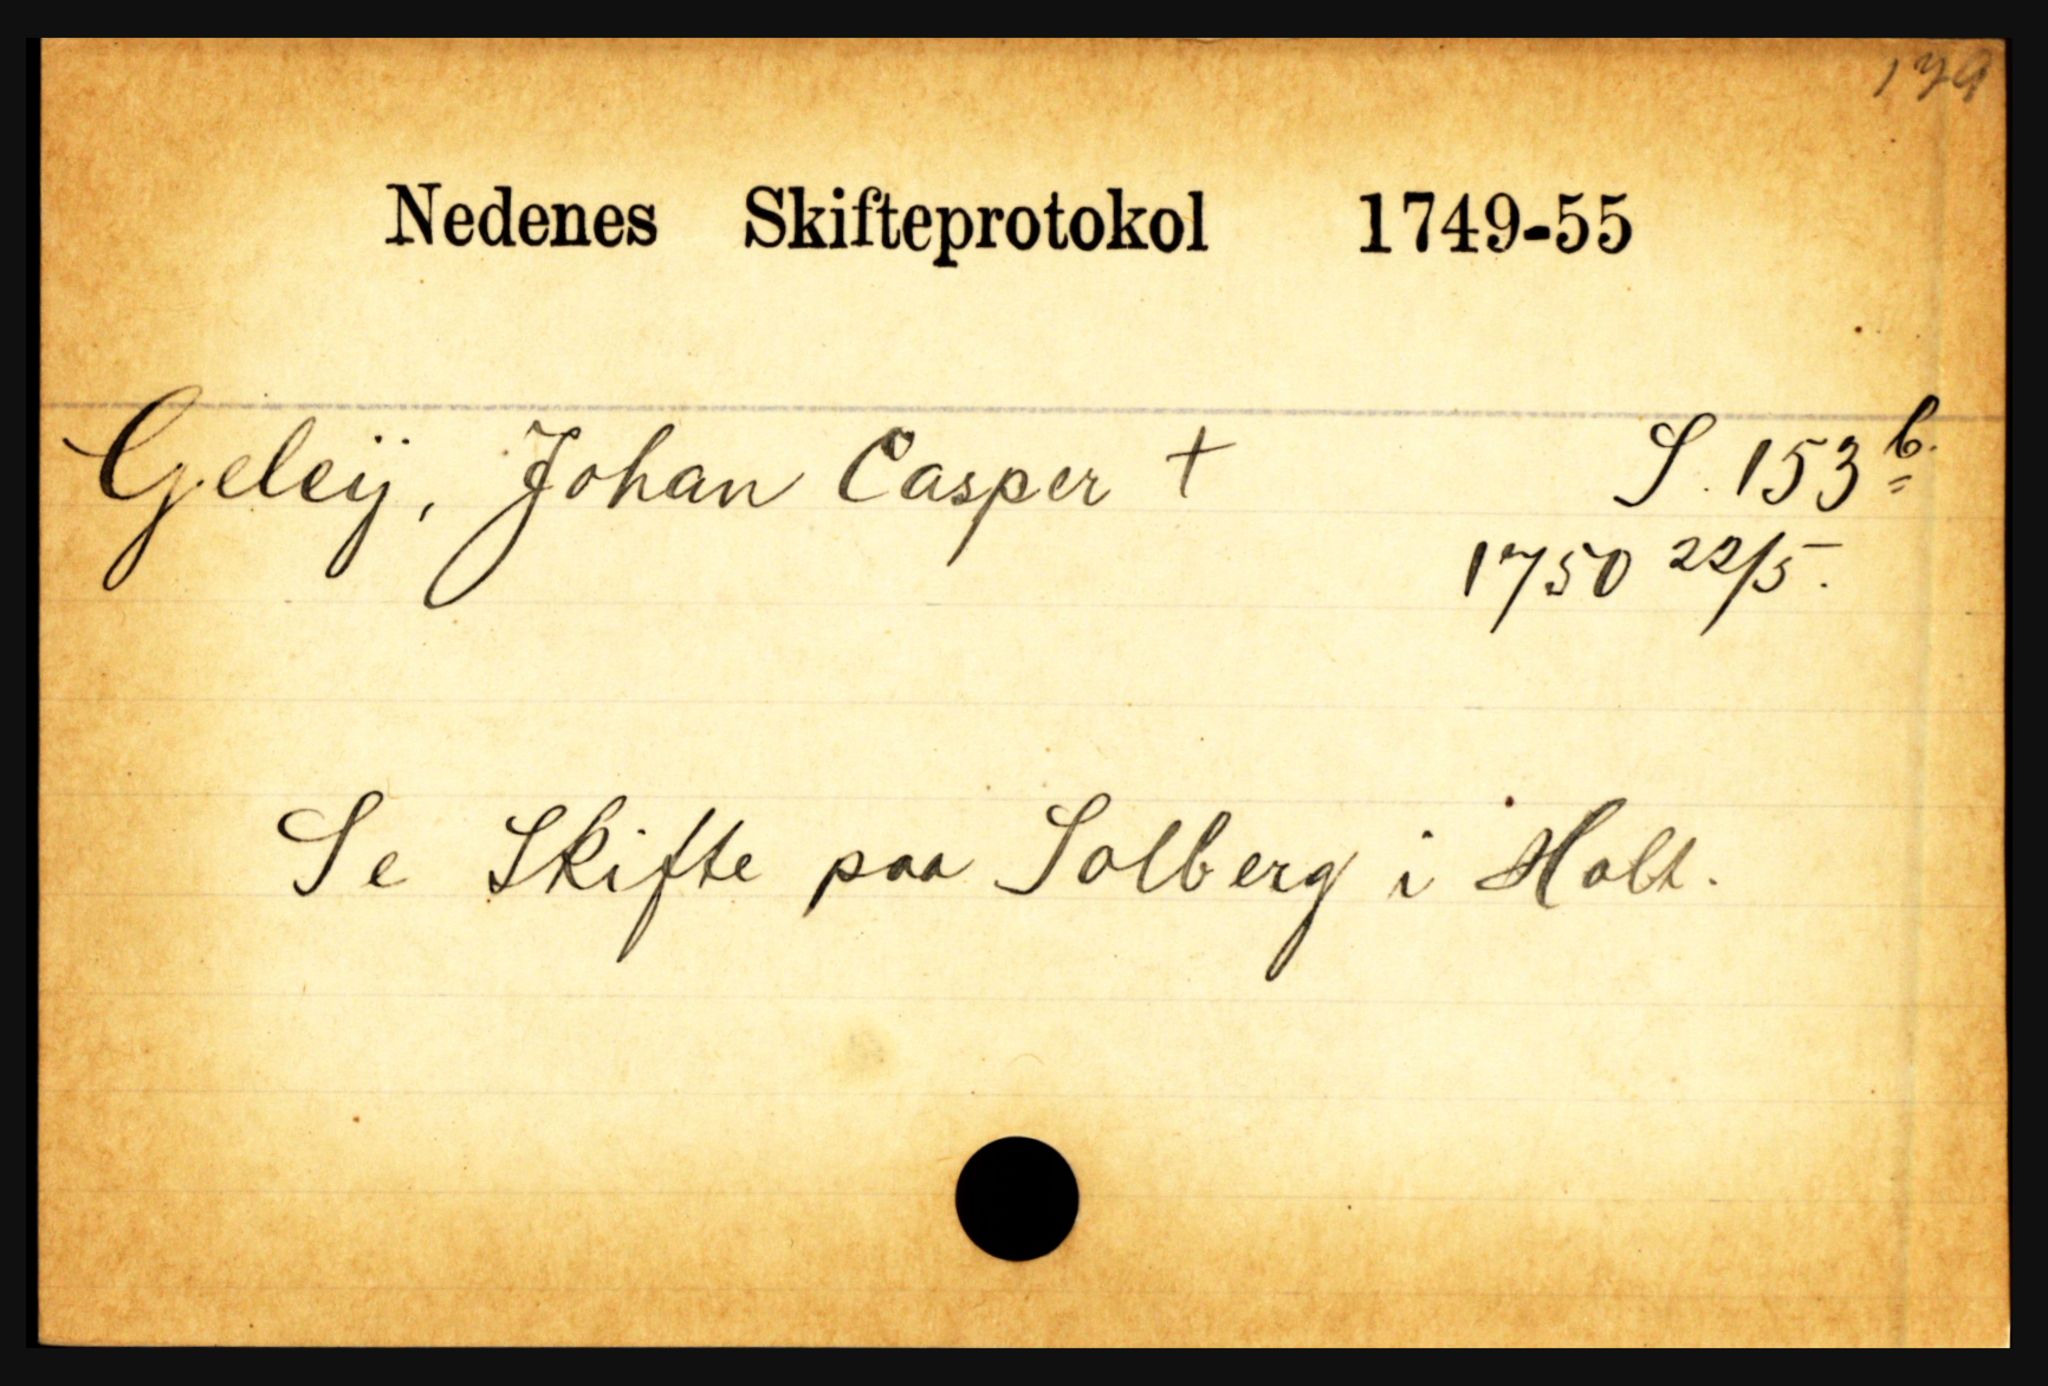 179
Nedenes Skifteprotokol 1749-55
Geleÿ, Johan Casper † S. 153 b.
1750 22/5.
Se Skifte paa Solberg i Holt.